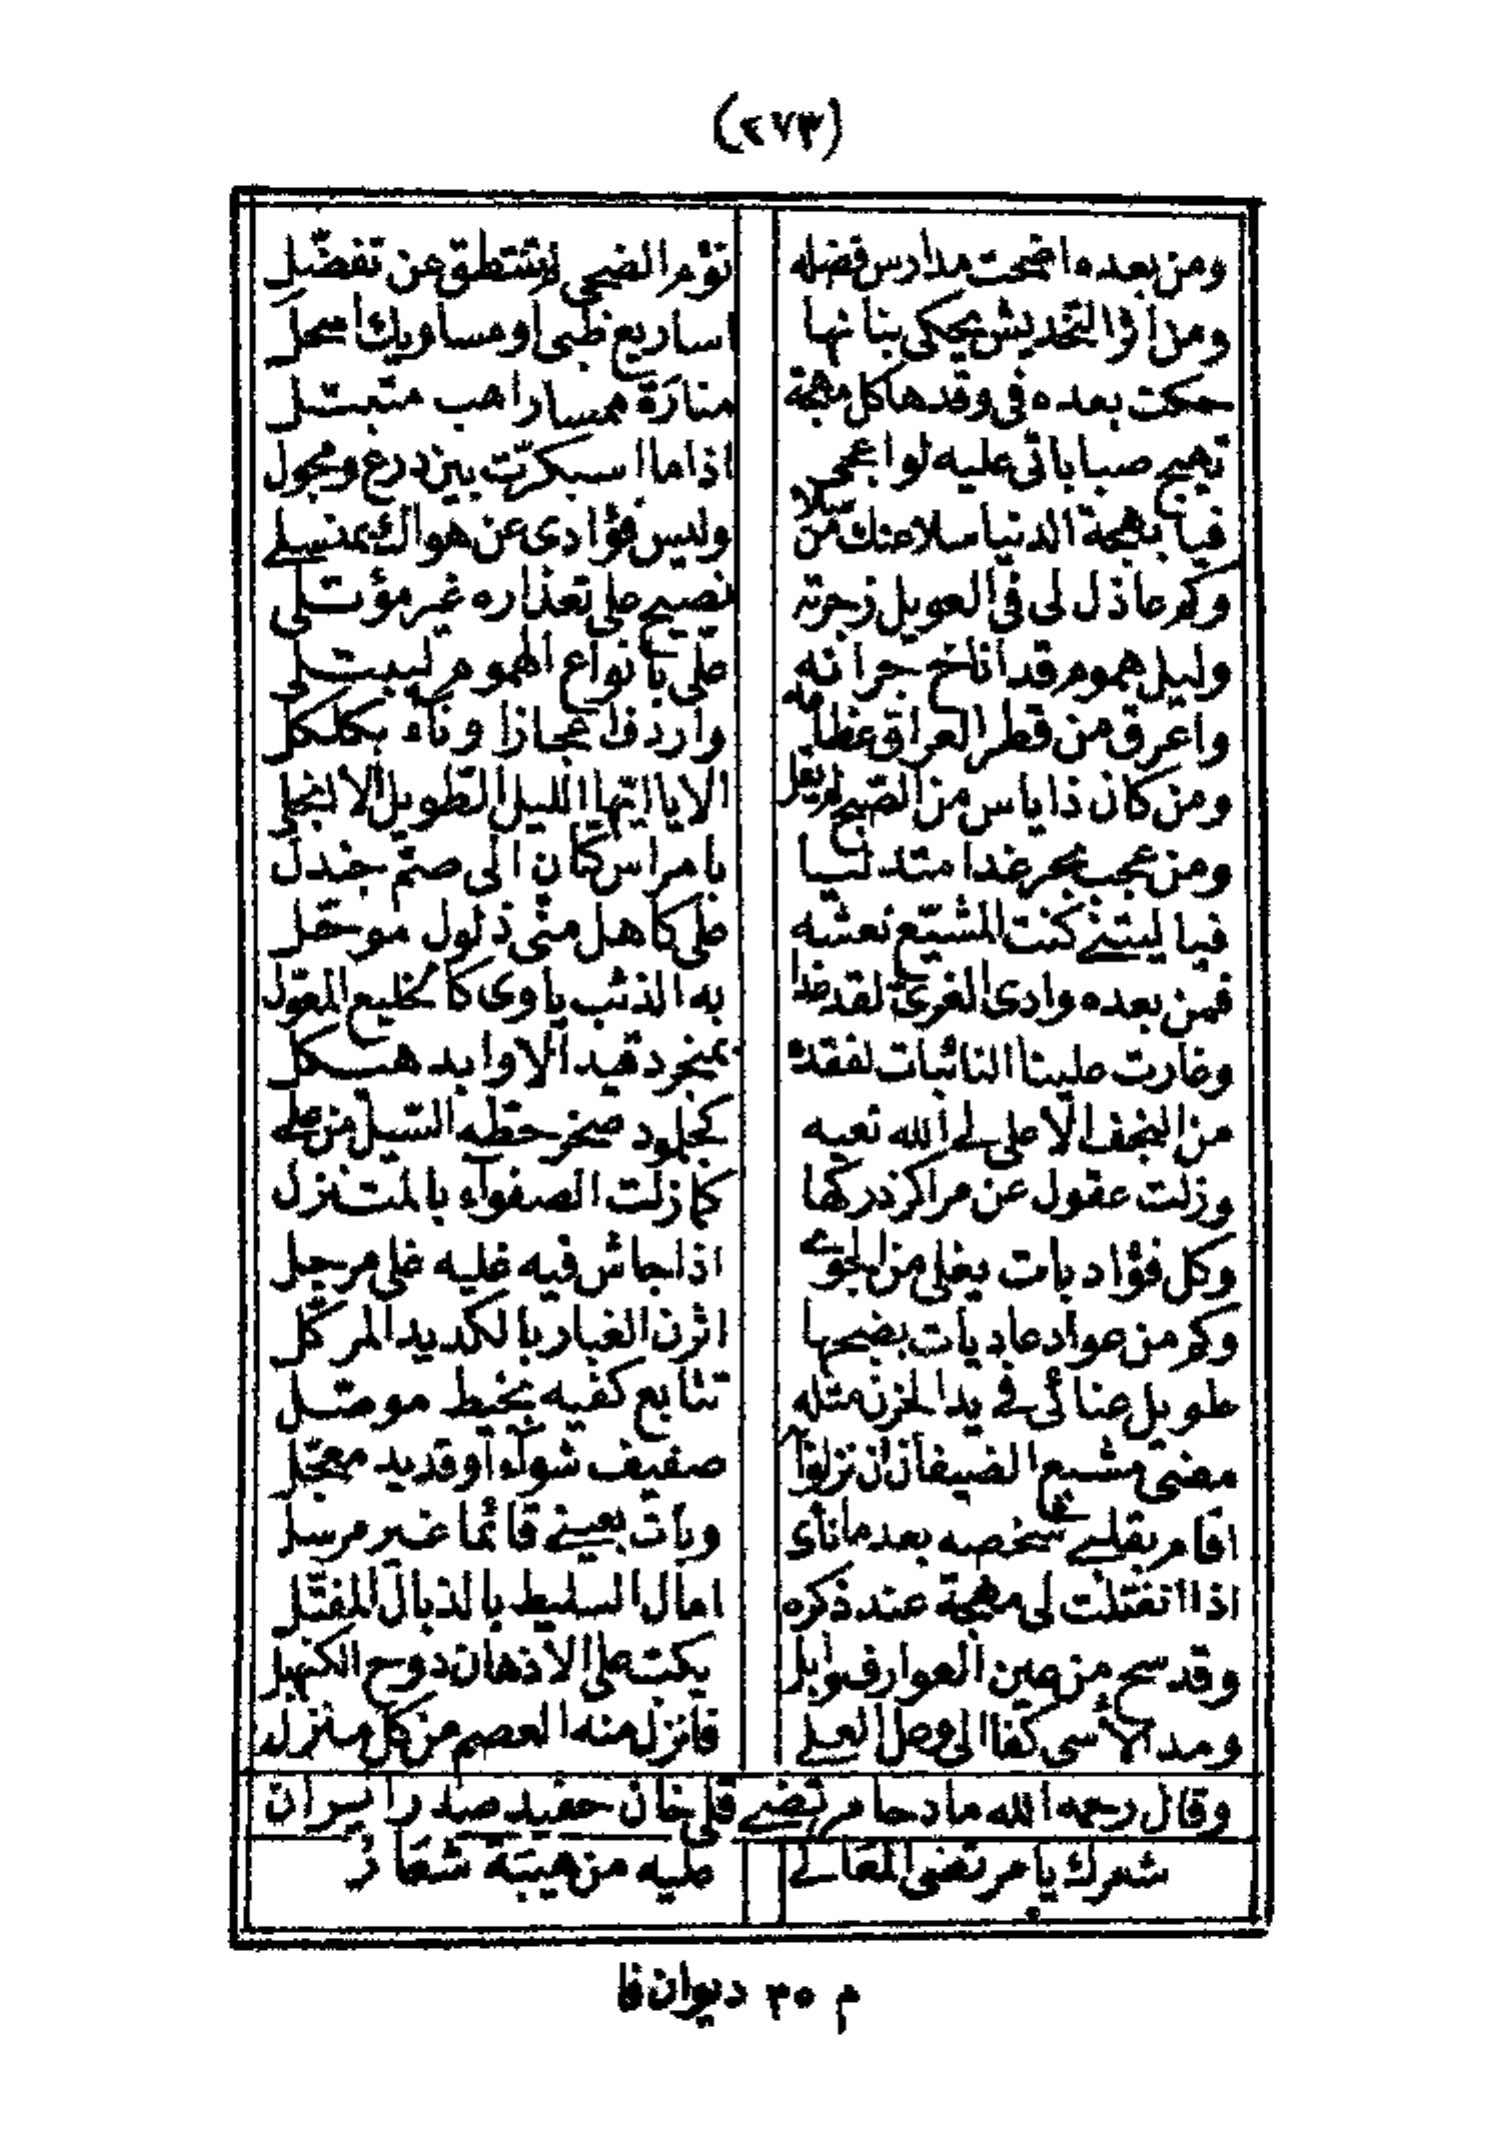 (٢٧٣)
ومن بعده اضحت مدارس فضله نؤم الضحى لم تنتطق عن تفضّل
ومن اثر التخديش يحكى بنانها اساريع ظبى او مساويك اسحل
حكت بعده فى وقدها كل مهجة منارة ممسا راهب متبتل
تهيج صباباتى عليه لواعجى اذا ما اسبكرّت بين درع ومجول
فيا بهجة الدنيا سلا عنك من سلا وليس فؤادى عن هواك بمنسلى
وكم عاذل لى فى العويل زجرته نصيح على تعذاره غير مؤتلى
وليل هموم قد اناخ جرانه علىّ بانواع الهموم ليبتلى
واعرق من قطر العراق عظامه واردف اعجازا وناء بكلكل
ومن كان ذا ياس من الصبح لم يقل الا يا ايّها الليل الطويل الا انجلى
ومن عجب بحر غدا متدليا بامراس كتّان الى صمّ جندل
فيا ليتنى كنت المشيّع نعشه على كاهل منّى ذلول مرحّل
فمن بعده وادى الغرىّ لقد غدا به الذئب ياوى كالخليع المعوّل
وغارت علينا النائبات لفقده بمنجرد قيد الاوابد هيكل
من النجف الاعلى لى الله نعيه كجلمود صخر حطه السّيل من على
وزلت عقول عن مراكز دركها كما زلت الصفواء بالمتنزل
وكل فؤاد بات يغلى من الجوى اذا جاش فيه غليه غلى مرجل
وكم من عواد عاديات بضبحها اثرن الغبار بالكديد المركّل
طويل عنائى فى يد الحزن مثله تتابع كفيه بخيط موصّل
مضى مشبع الضيفان ان نزلوا به صفيف شواء او قديد معجّل
اقام بقلبى شخصه بعد ما نأى وبات بعينى قائما غير مرسل
اذا انفتلت لى مهجة عند ذكره امال السليط بالذبال المفتّل
وقد سح من عين العوارف وابل يكب على الاذهان دوح الكنهبل
ومد الأسى كفا الى وصل العلى فانزل منه العصم من كل منزل
وقال رحمه الله مادحا مرتضى قلى خان حفيد صدر ايران
شعرك يا مرتضى المعالى عليه من هيبة شعار
م ٣٥ ديوان فا